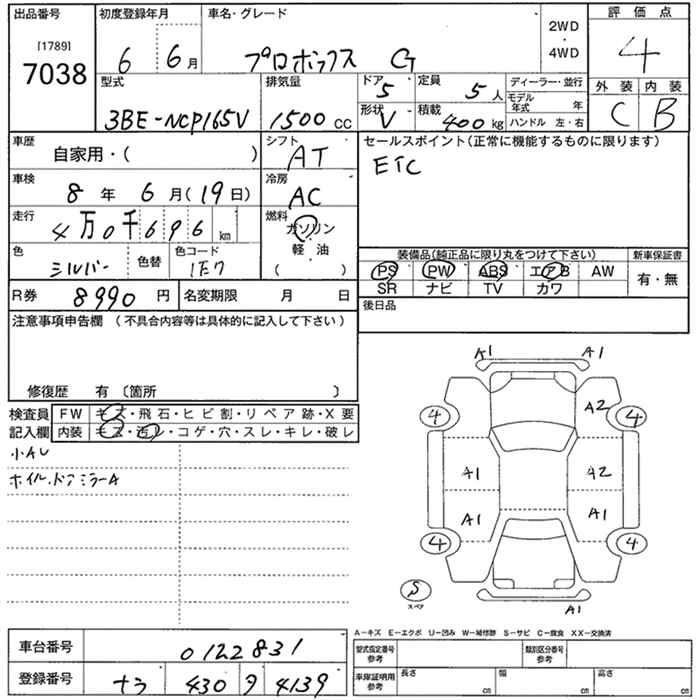 出品番号
[1789]
7038
初度登録年月
6 6月
車名・グレード
プロボックス G
2WD
・
4WD
評価点
4
型式
3BE-NCP165V
排気量
1500 CC
ドア
5
定員
5人
ディーラー・並行
モデル年式 年
ハンドル 左・右
形状
V
積載
400kg
外装 内装
C B
車歴
自家用・( )
シフト
AT
セールスポイント(正常に機能するものに限ります)
ETC
車検
8年 6月(19日)
冷房
AC
走行
4万0千696km
燃料
ガソリン
軽・油
( )
色
シルバー
色替
色コード
1E7
装備品(純正品に限り丸をつけて下さい)
新車保証書
PS PW ABS エアB AW
SR ナビ TV カワ
有・無
R券
8990円
名変期限 月 日
後日品
注意事項申告欄 (不具合内容等は具体的に記入して下さい)
修復歴 有〔箇所 〕
検査員記入欄
FW キズ・飛石・ヒビ割・リペア跡・X要
内装 キズ・汚レ・コゲ・穴・スレ・キレ・破レ
小AU
ホイル.ドアミラーA
A1 A1
4 A2 4
A1 A2
A1 A1
4 4
S
スペア
A1
A-キズ E-エクボ U-凹み W-補修跡 S-サビ C-腐食 XX-交換済
車台番号
0122831
登録番号
ナラ 430 9 4139
型式指定番号
参考
類別区分番号
参考
車庫証明用
参考
長さ cm
幅 cm
高さ cm